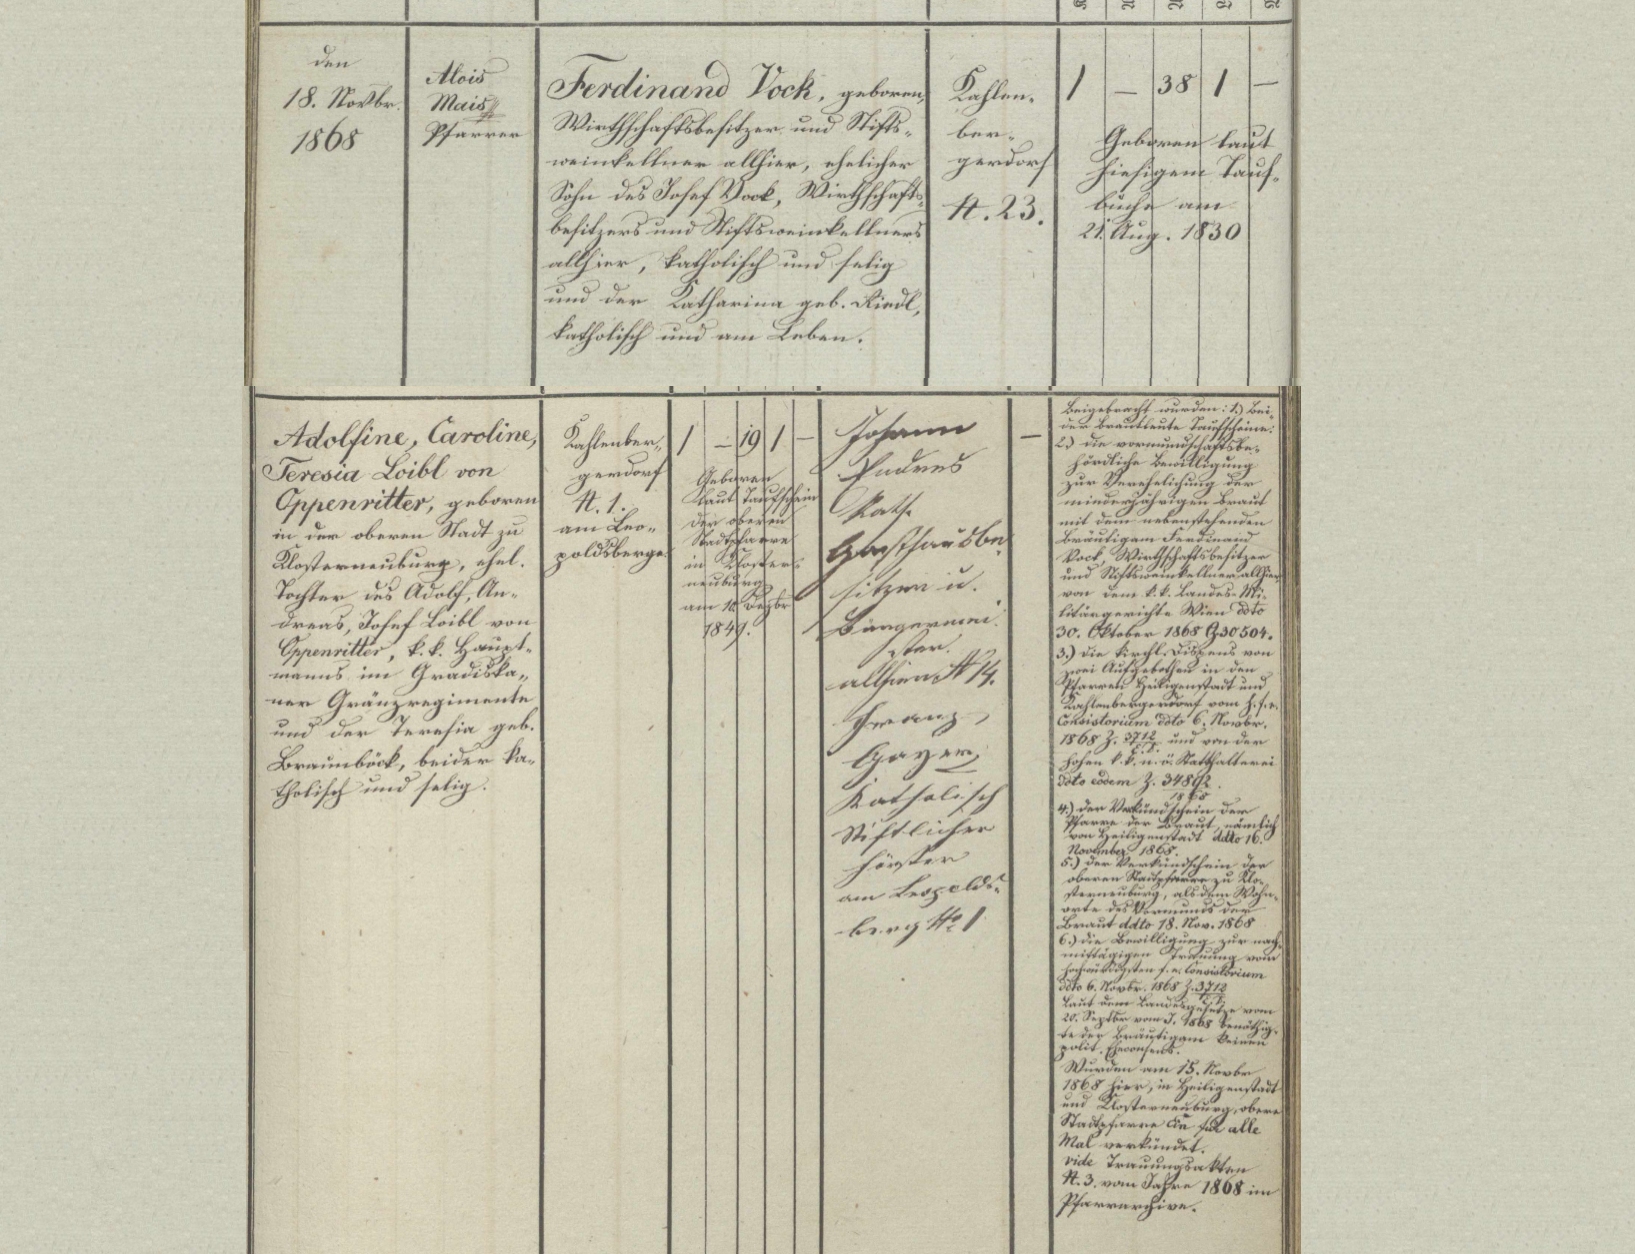 den
18. Novbr.
1868
Alois
Mais
Pfarrer
Ferdinand Vock, geboren,
Wirthschaftsbesitzer und Stifts-
weinkellner allhier, ehelicher
Sohn des Josef Vock, Wirthschafts-
besitzers und Stiftsweinkellners
allhier, katholisch und selig
und der Katharina geb. Riedl,
katholisch und am Leben.
Kahlen-
ber-
gerdorf
N. 23.
1 — 38 1 —
Geboren laut
hiesigem Tauf-
buche am
21. Aug. 1830
Adolfine, Caroline,
Teresia Loibl von
Oppenritter, geboren
in der oberen Stadt zu
Klosterneuburg, ehel.
Tochter des Adolf, An-
dreas, Josef Loibl von
Oppenritter, k.k. Haupt-
manns im Gradiska-
ner Gränzregimente
und der Teresia geb.
Braunböck, beider ka-
tholisch und selig.
Kahlenber-
gerdorf
N. 1.
am Leo-
poldsberge.
1 — 19 1 —
Geboren
laut Taufschein
der oberen
Stadtpfarre
in Kloster-
neuburg
am 10. Dezbr
1849.
Johann
Endres
Kath.
Gasthausbe-
sitzer u.
Bürgermei-
ster.
allhier N 14.
Franz
Gayer
Katholisch
Stiftlicher
Förster
am Leopolds-
berg No 1
—
Beigebracht wurden: 1.) Bei-
der Brautleute Taufscheine.
2.) die vormundschaftsbe-
hördliche Bewilligung
zur Verehelichung der
minderjährigen Braut
mit dem nebenstehenden
Bräutigam Ferdinand
Vock, Wirthschaftsbesitzer
und Stiftsweinkellner allhier
von dem k.k. Landes-Mi-
litärgerichte Wien ddto
30. Oktober 1868 Z 30504.
3.) die kirchl. Dispens von
zwei Aufgebothen in den
Pfarren Heiligenstadt und
Kahlenbergerdorf vom h. f. e.
Consistorium ddto 6. Novbr.
1868 Z. 3712 und von der
hohen k.k. n. ö. Statthalterei
ddto eodem Z. 34892.
1868
4.) der Verkündschein der
Pfarre der Braut, nämlich
von Heiligenstadt ddto 16.
November 1868.
5.) der Verkündschein der
oberen Stadtpfarre zu Klo-
sterneuburg, als dem Wohn-
orte des Vormunds der
Braut ddto 18. Nov. 1868
6.) die Bewilligung zur nach-
mittägigen Trauung vom
hochwürdigsten f. e. Consistorium
ddto 6. Novbr. 1868 Z. 3712
Laut dem Landesgesetze vom
20. Septbr vom J. 1868 benöthig-
te der Bräutigam keinen
polit. Eheconsens.
Wurden am 15. Novbr
1868 hier, in Heiligenstadt
und Klosterneuburg, obere
Stadtpfarre Ein für alle
Mal verkündet.
vide Trauungsakten
N. 3. vom Jahre 1868 im
Pfarrarchive.